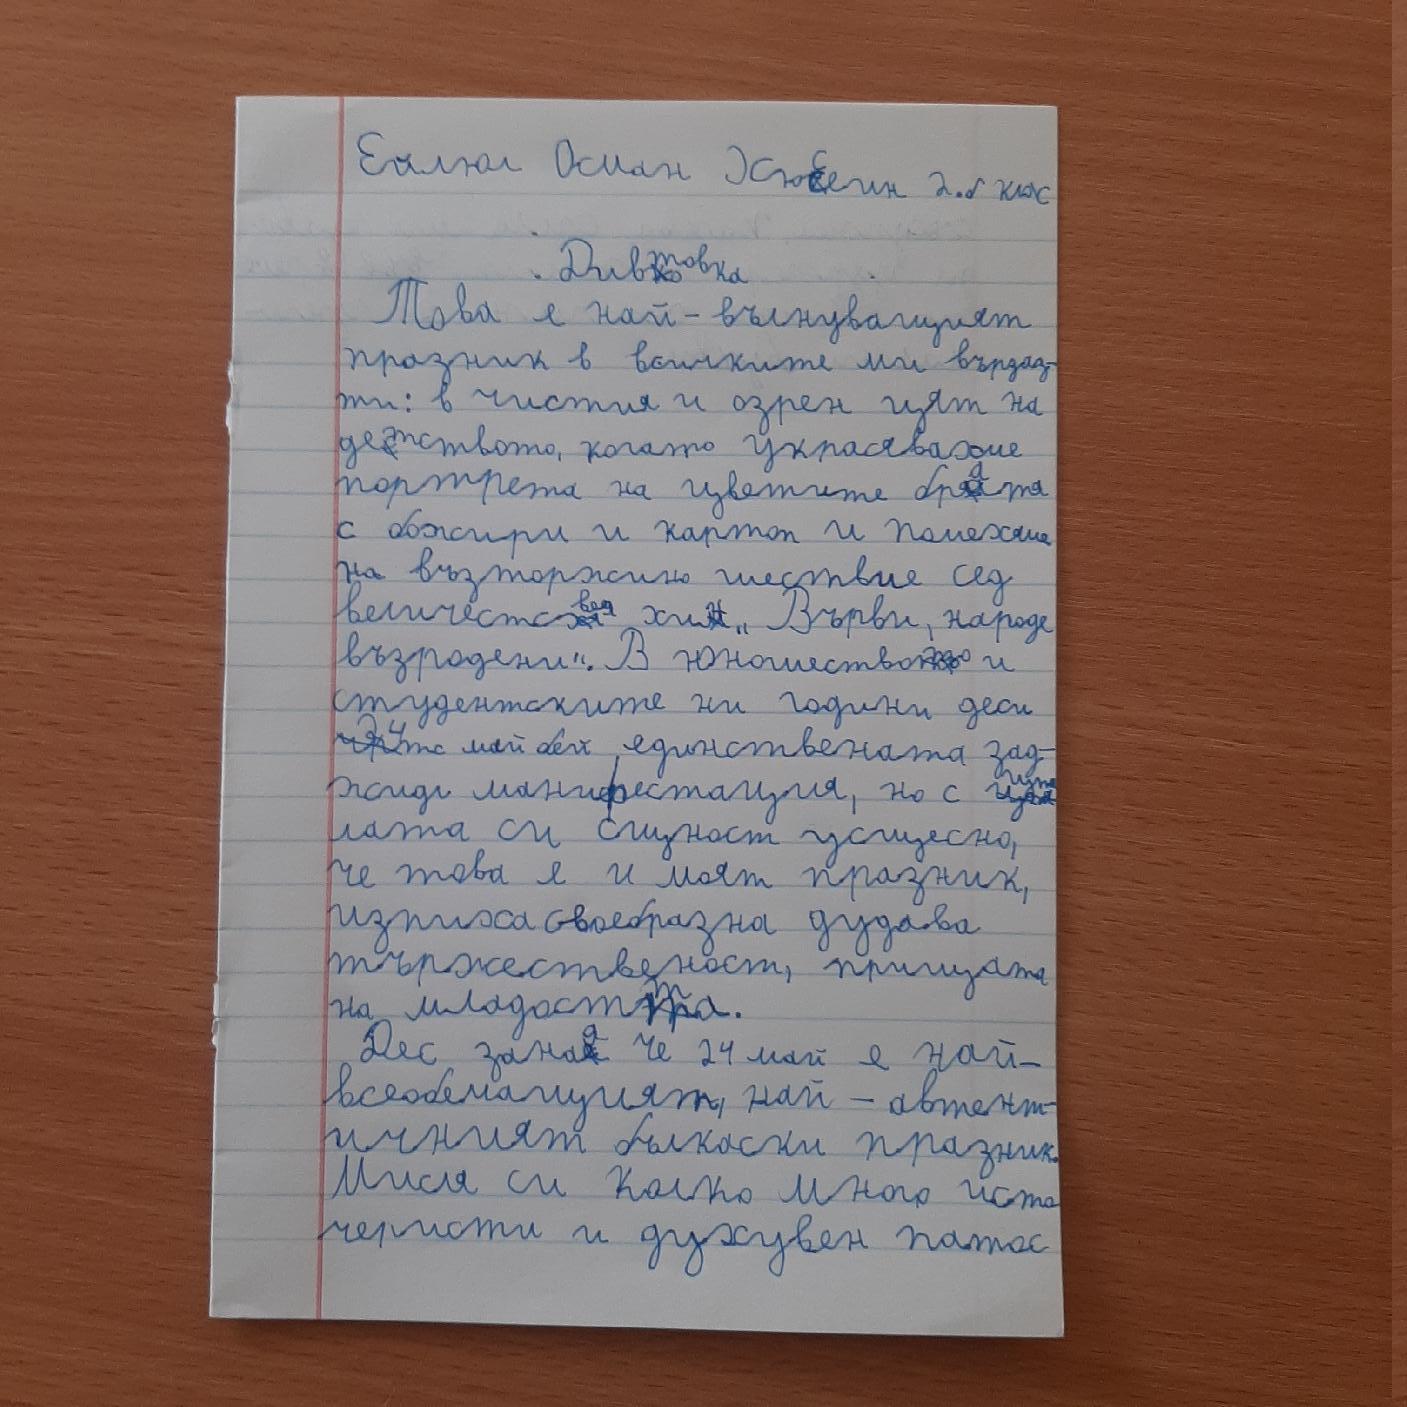 Осман Хюсеин 2.б клас
Диктовка
Това е най-вълнуващият
празник в всичките ми върдаз-
ти: в чистия и озрен цят на
детството, когато украсявахме
портрета на цветите братя
с обжири и картон и помехме
на възторжино шествие сед
величество хи „Върви, народе
възродени“. В юношество и
студентските ни години деси
24 май бей единствената зад-
жиди манифестация, но с
лата си сищност усищесно,
че това е и моят празник,
изпиха своебразна дудава
тържественост, прищата
на младостта.
Дес зана че 24 май е най-
всеобемащият, най-автент-
ичният бълкоски празник.
Мисля си колко много исто
черисти и духувен патос